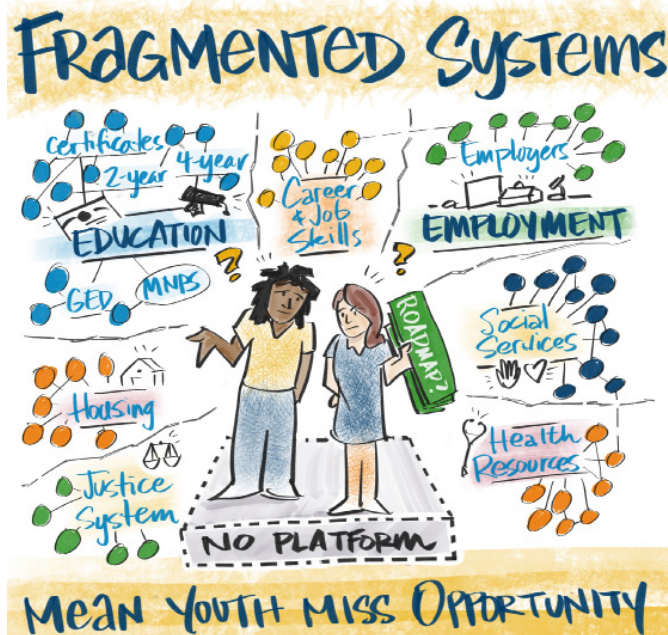 FRAGMENTED SYSTEMS
certificates
2-year
4-year
EDUCATION
GED
MNPS
Career
& Job
Skills
Employers
EMPLOYMENT
?
?
ROADMAP?
Social
Services
Housing
Health
Resources
Justice
System
NO PLATFORM
MEAN YOUTH MISS OPPORTUNITY